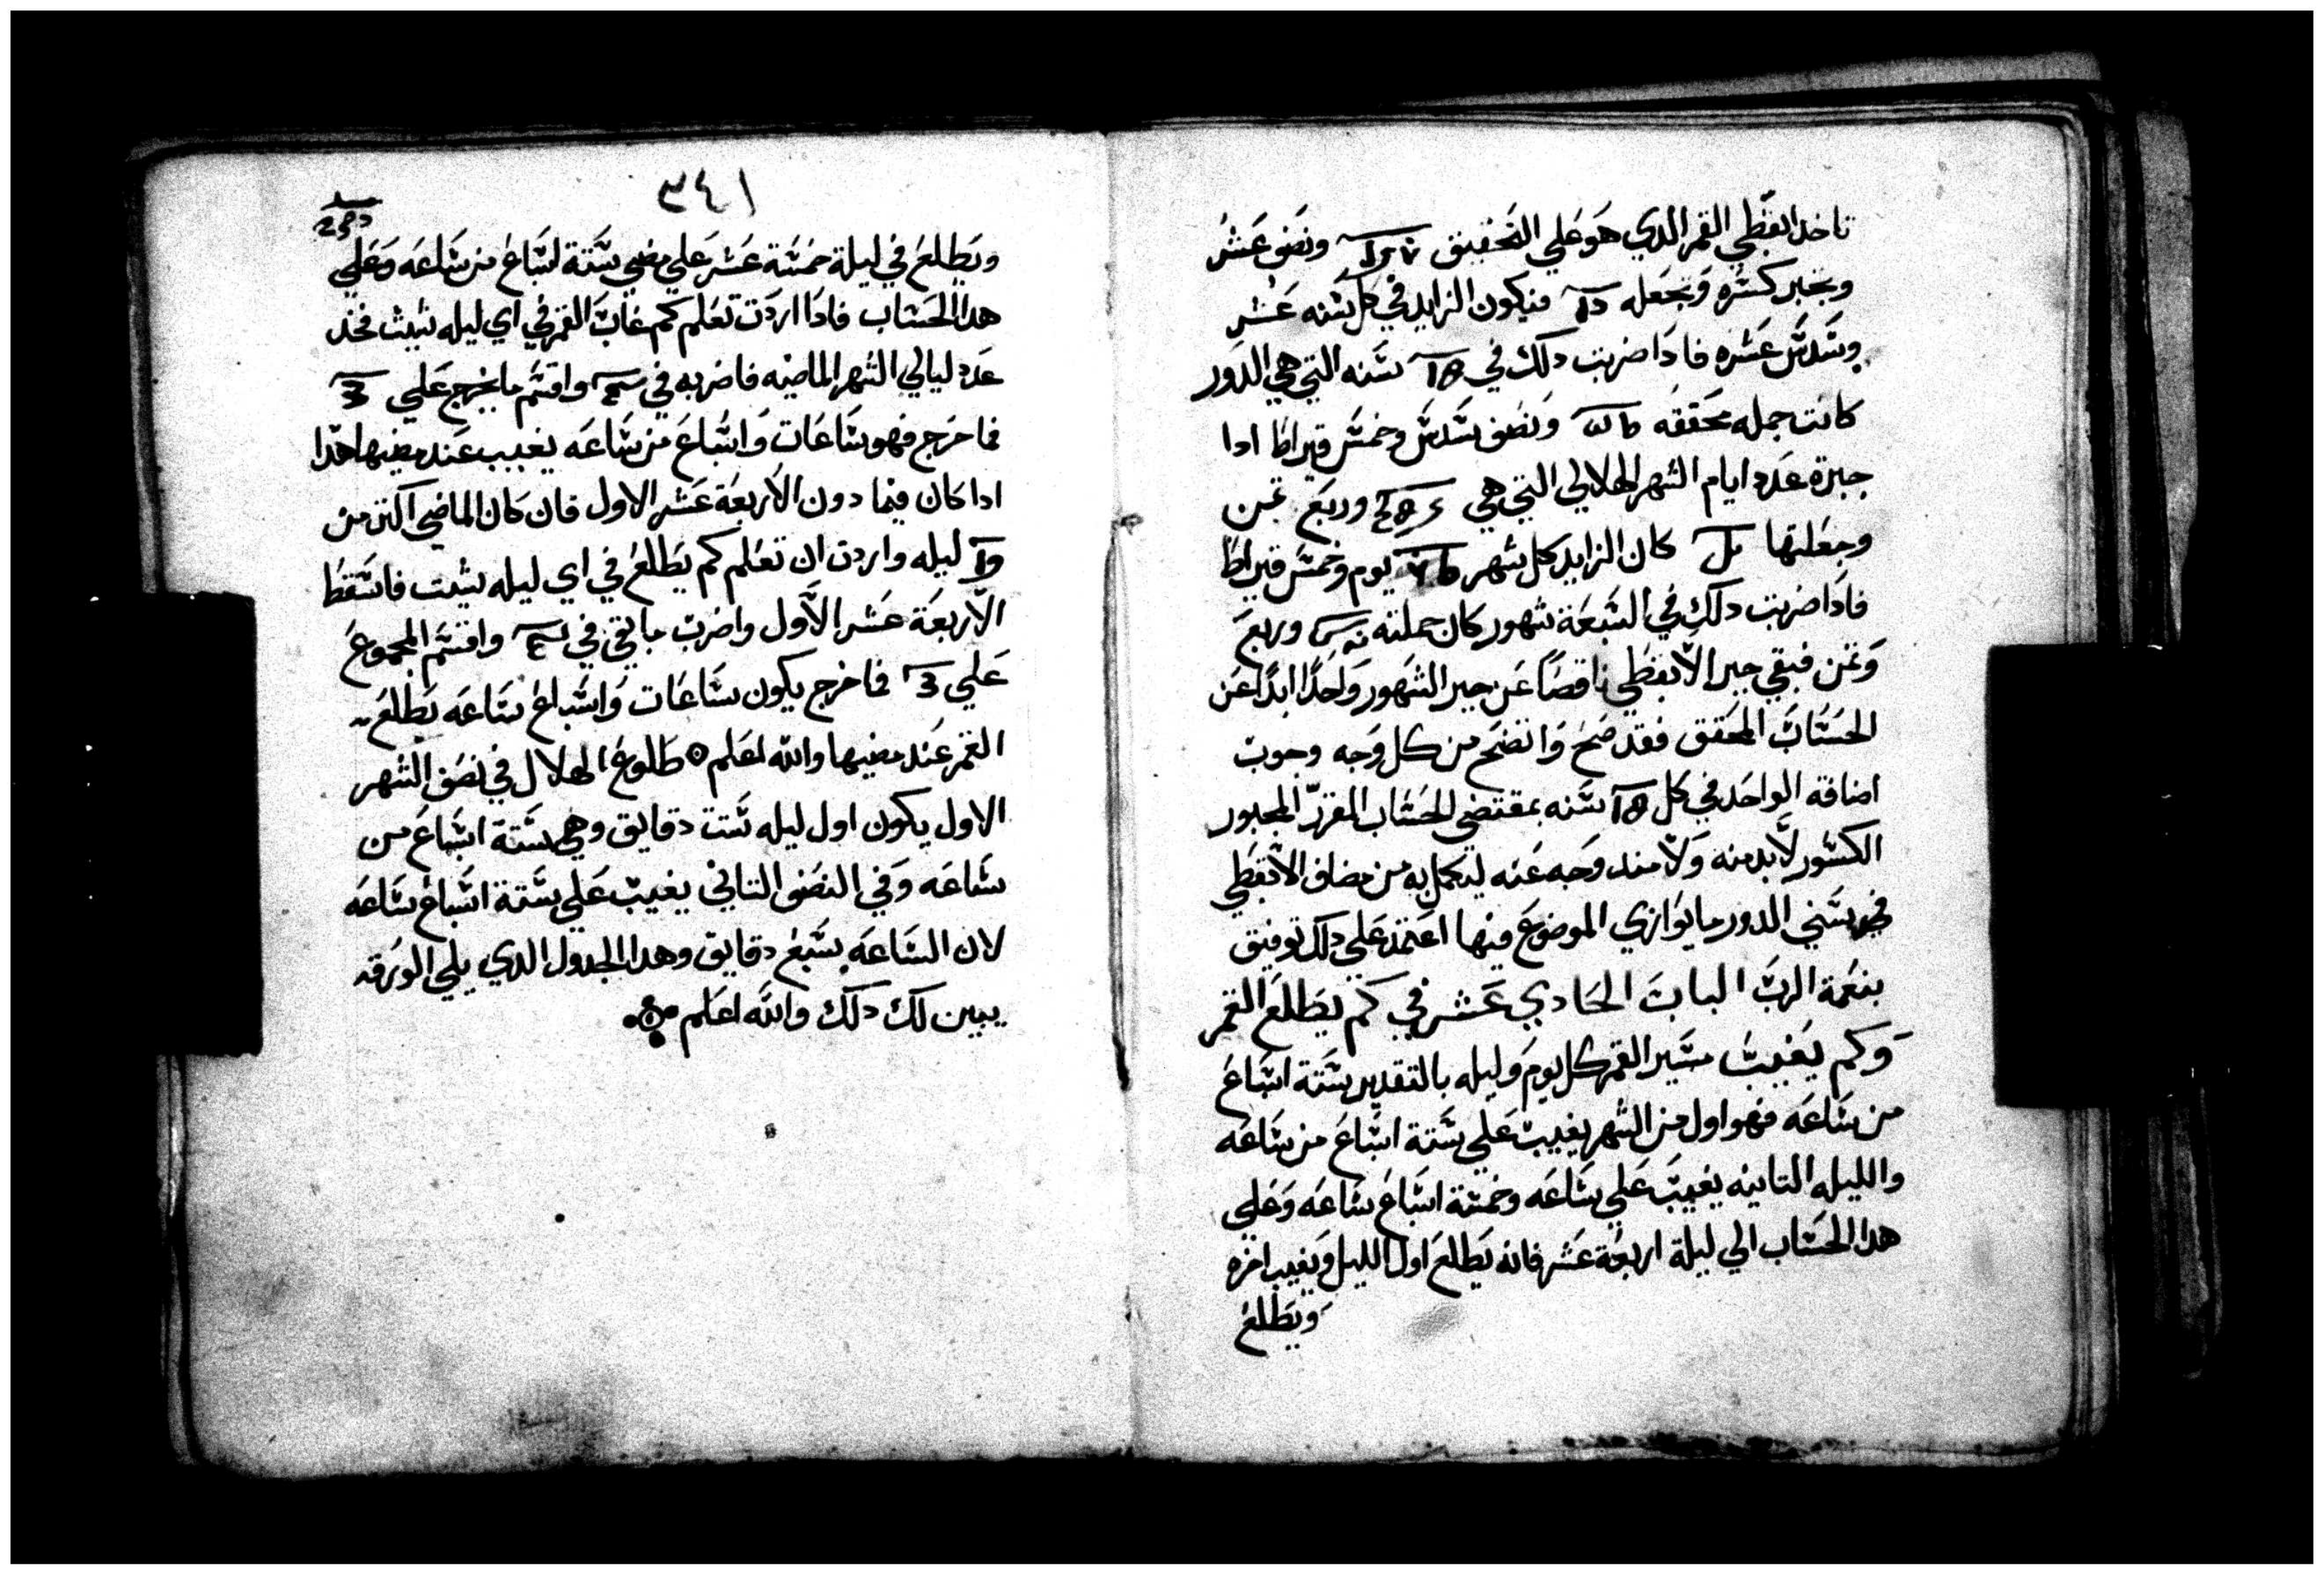 تاخد ابقطي القمر الدي هو علي التحقيق ونصف عشر
ويجبر كسره ويجعله فيكون الزايد في كل سنه عشر
وسدس عشره فادا ضربت دلك في سنه التي هي الدور
كانت جمله محققه ونصف سدس وخمس قيراط ادا
جبرة عدد ايام الشهر الهلالي التي هي وربع تمن
وجعلتها كان الزايد كل شهر يوم وخمس قيراط
فادا ضربت دلك في السبعة شهور كان جملته وربع
وتمن فبقي جبر الابقطي ناقصًا عن جبر الشهور واحدًا ابدًا عن
الحساب المحقق فقد صح واتضح من كل وجه وجوب
اضافة الواحد في كل سنه بمقتضي الحساب المقرر المجبور
الكسور لابد منه ولا مندوحه عنه ليكمل به من مضاف الابقطي
في سني الدور ما يوازي الموضوع فيها اعتمد علي دلك توفيق
بنعمة الرب الباب الحادي عشر في كم يطلع القمر
وكم يغيب مسير القمر كل يوم وليله بالتقدير ستة اسباع
من ساعه فهو اول من الشهر يغيب علي ستة اسباع من ساعه
والليله التانيه يغيب علي ساعه وخمسة اسباع ساعه وعلي
هدا الحساب الي ليلة اربعة عشر فانه يطلع اول الليل ويغيب اخره
ويطلع
٣٤١
ويطلع في ليلة خمسة عشر علي مضي ستة اسباع من ساعه وعلي
هدا الحساب فادا اردت تعلم كم غاب القمر في اي ليله شيت فخد
عدد ليالي الشهر الماضيه فاضربه في واقسم ما يخرج علي
فما خرج فهو ساعات واسباع من ساعه يغيب عند مضيها هدا
ادا كان فيما دون الاربعة عشر الاول فان كان الماضي اكتر من
ليله واردت ان تعلم كم يطلع في اي ليله شيت فاسقط
الاربعة عشر الاول واضرب ما بقي في واقسم المجموع
علي فما خرج يكون ساعات واسباع ساعه يطلع
القمر عند مضيها والله اعلم طلوع الهلال في نصف الشهر
الاول يكون اول ليله ستت دقايق وهي ستة اسباع من
ساعه وفي النصف التاني يغيب علي ستة اسباع ساعه
لان الساعه بسبع دقايق وهدا الجدول الدي يلي الورقه
يبين لك دلك والله اعلم